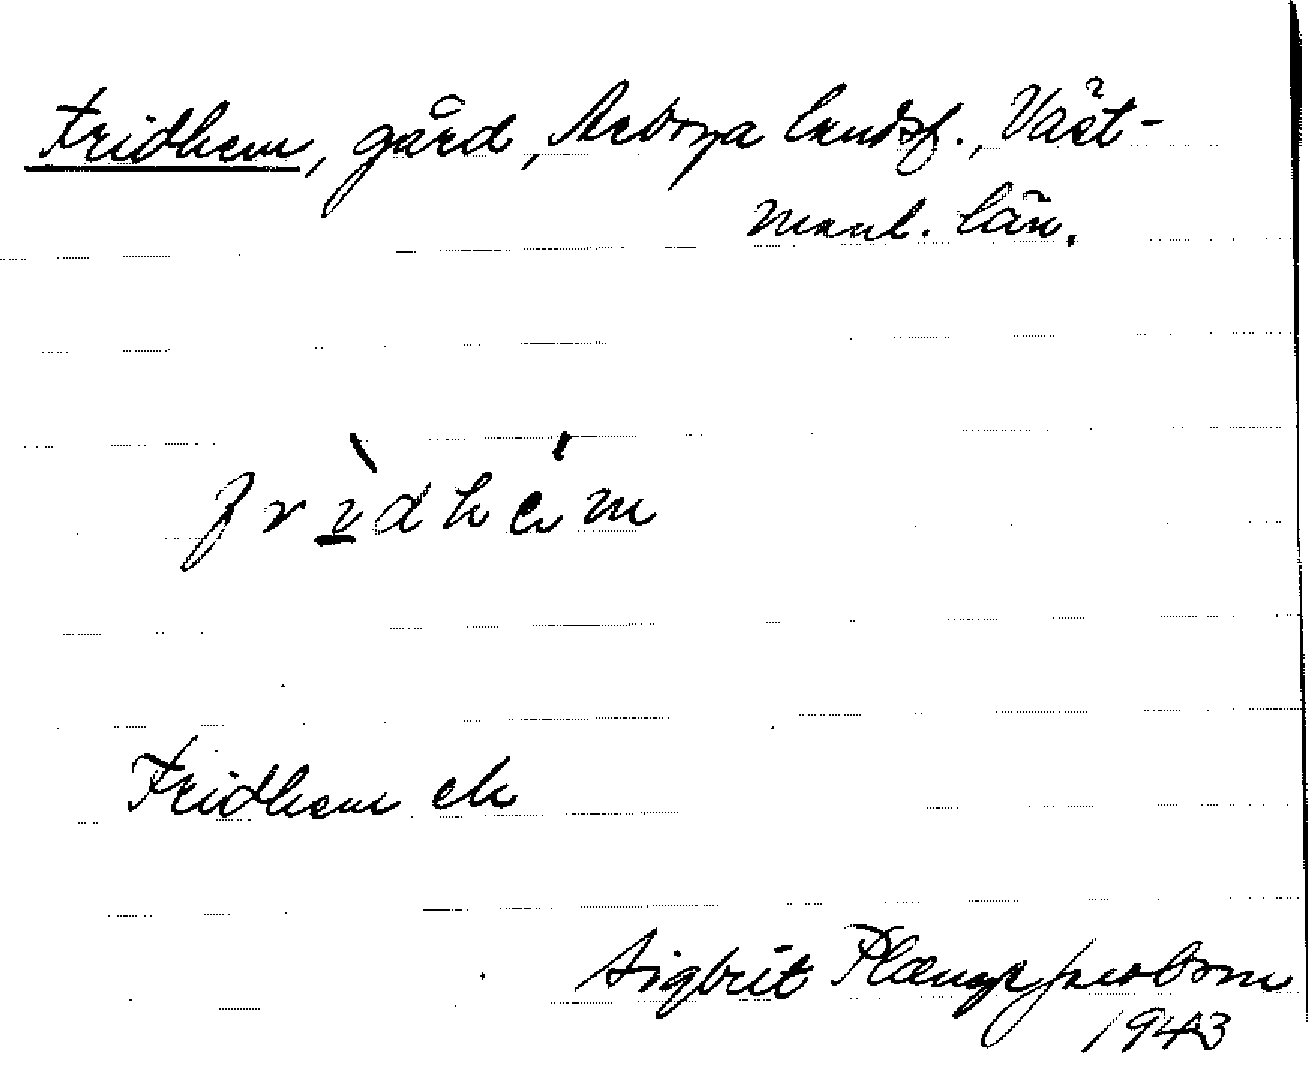 Fridhem, gård, Arboga landsf., Väst-
manl. län.
frìdhém
Fridhem ek
Sigbrit Plænge Jacobson
1943